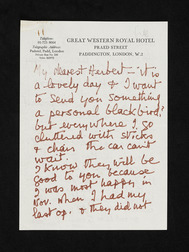 Telephone:
01-723 8064
GREAT WESTERN ROYAL HOTEL
PRAED STREET
PADDINGTON, LONDON, W.2
My Dearest Herbert - it is
a lovely day & I want
to send you something
a personal blackbird!
but everywhere I go
cluttered with sticks
& chairs the can can't
wait.
I know they will be
good to you because
I was most happy in
Nov. when I had my
last op. & they did not